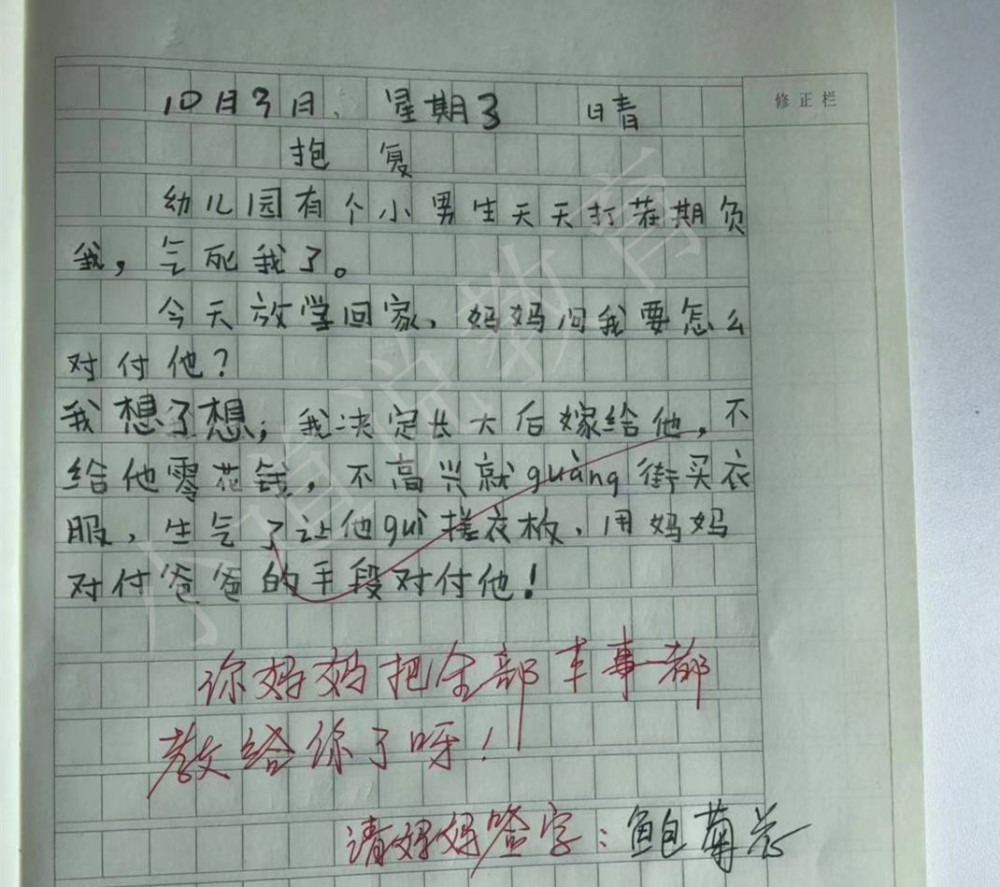 修正栏
10月3日、 星期3 晴
抱 复
幼儿园有个小男生天天打茬期负
我，气死我了。
今天放学回家，妈妈问我要怎么
对付他？
我想了想，我决定长大后嫁给他，不
给他零花钱，不高兴就guàng街买衣
服，生气了让他guì搓衣板，用妈妈
对付爸爸的手段对付他！
你妈妈把全部本事都
教给你了呀！
请妈妈签字：鲍菊
小道说教育